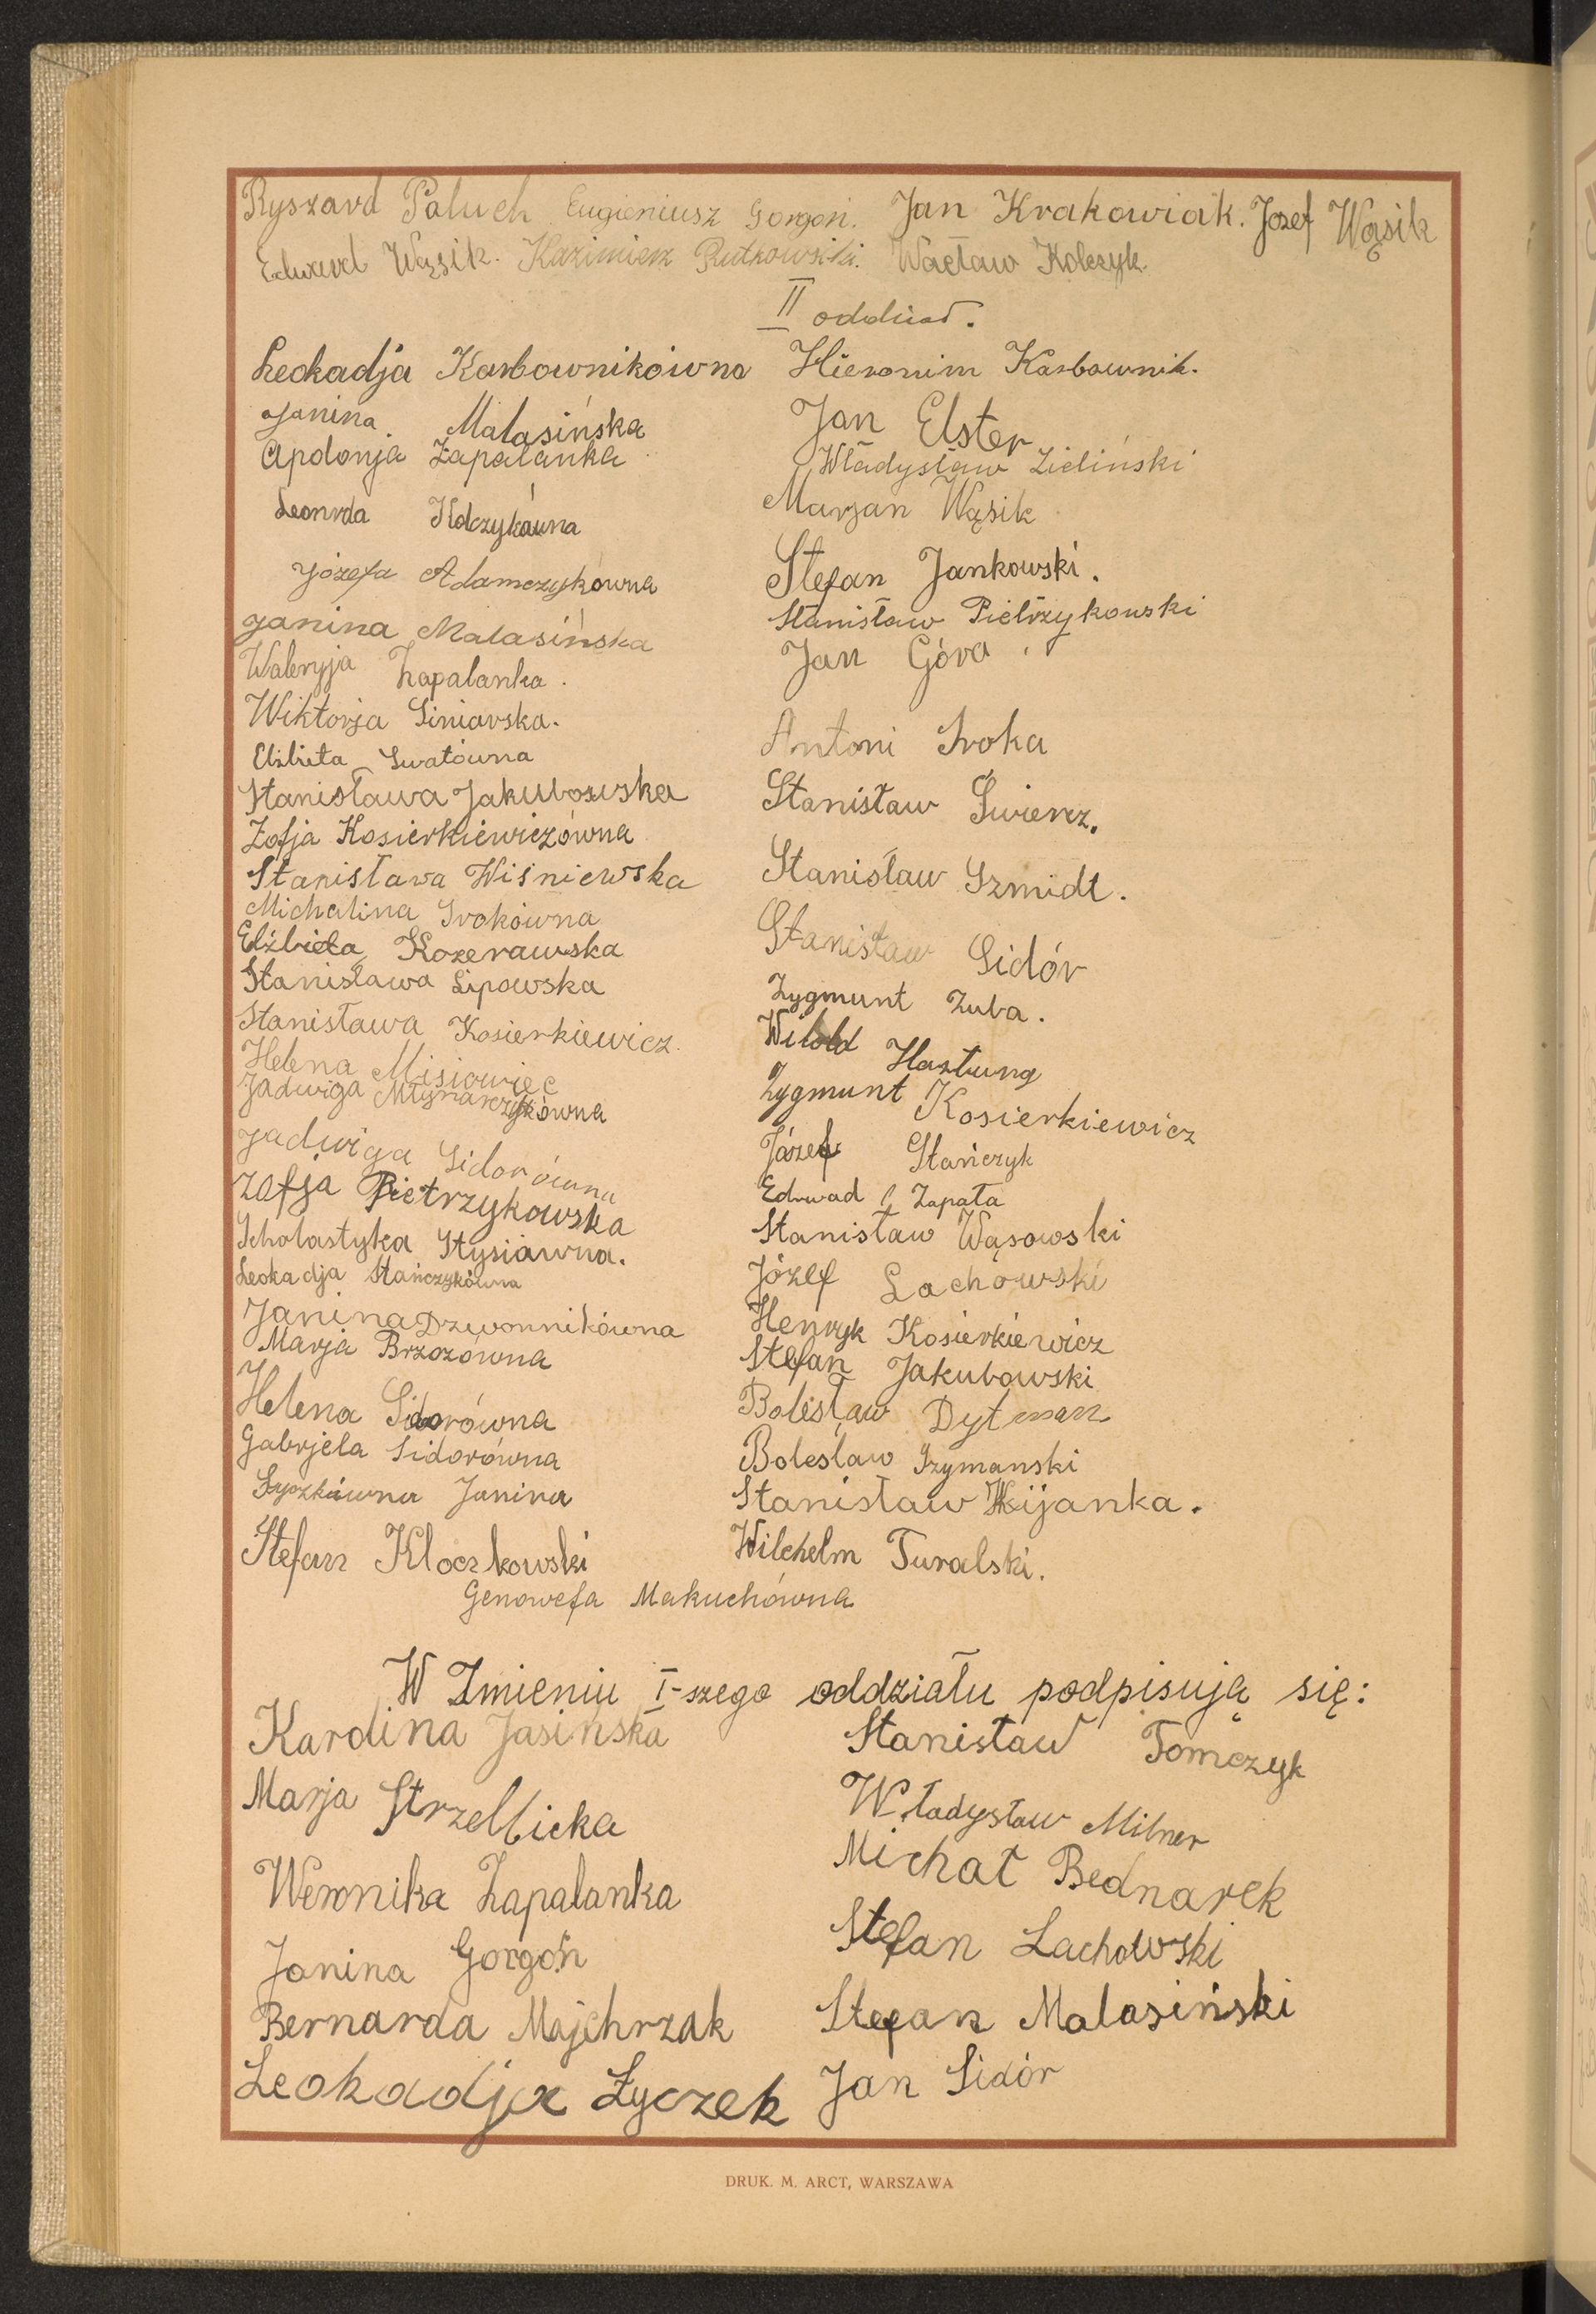 Ryszard Paluch Eugieniusz Gorgoń. Jan Krakowiak. Jozef Wąsik
Edward Wąsik. Kazimierz Rutkowski. Wacław Kolczyk.
II oddział.
Leokadja Karbownikówna
Janina Malasińska
Apolonja Zapalanka
Kolczykówna
Józefa Adamczykówna
Janina Malasińska
Waleryja Zapalanka.
Wiktorja Siniarska.
Elżbieta Swatówna
Stanisława Jakubowska
Zofja Kosierkiewiczówna
Stanisława Wiśniewska
Michalina Srokówna
Elżbieta Kozerawska
Stanisława Lipowska
Stanisława Kosierkiewicz.
Helena Misiowiec
Jadwiga Młynarczykówna
Jadwiga Sidorówna
Zofja Pietrzykowska
Scholastyka Stysiawna.
Leokadja Stańczykówna
Janina Dzwonnikówna
Marja Brzozówna
Helena Sidorówna
Gabrjela Sidorówna
Janina
Stefan Kloczkowski
Hieronim Karbownik.
Jan Elster
Władysław Zieliński
Marjan Wąsik
Stefan Jankowski.
Stanisław Pietrzykowski
Jan Góra.
Antoni Sroka
Stanisław Świercz.
Stanisław Szmidt.
Stanisław Sidór
Zygmunt Zuba.
Witold Hartung
Zygmunt Kosierkiewicz
Józef Stańczyk
Edwad Zapała
Stanisław Wąsowski
Józef Lachowski
Henryk Kosierkiewicz
Stefan Jakubowski
Bolesław Dytman
Bolesław Szymanski
Stanisław Kijanka.
Wilchelm Turalski.
Genowefa Makuchówna
W Imieniu I-szego oddziału podpisują się:
Karolina Jasińska
Marja Strzelbicka
Weronika Zapalanka
Janina Gorgoń
Bernarda Majchrzak
Leokadja Życzek
Stanisław Tomczyk
Władysław Milner
Michał Bednarek
Stefan Lachowski
Stefan Malasiński
Jan Sidór
DRUK. M. ARCT, WARSZAWA